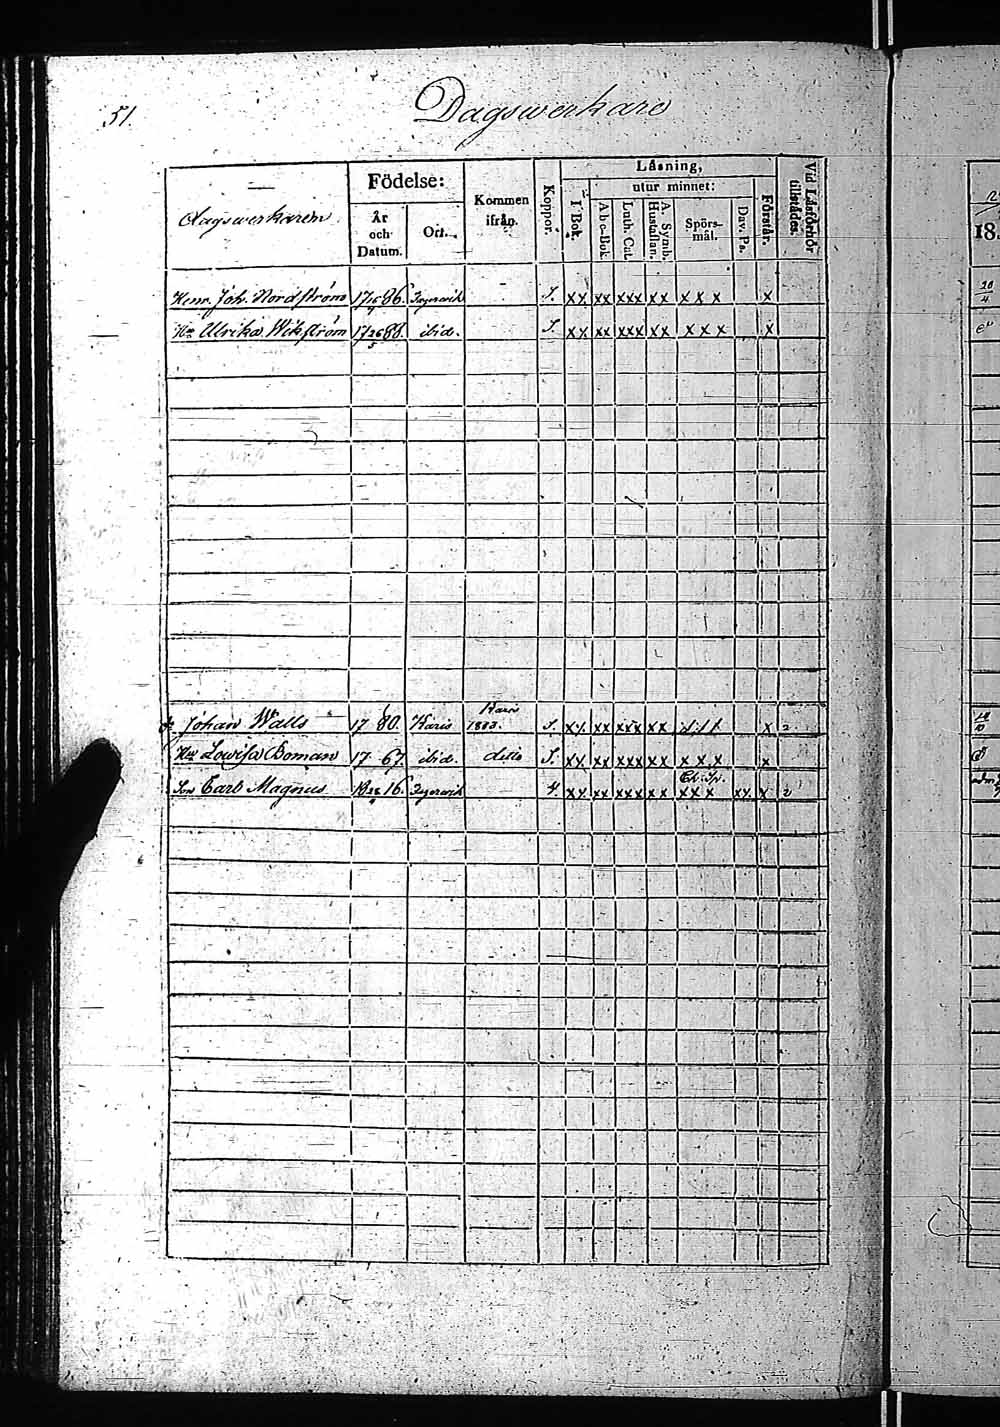 51.
Dagswerkare
Dagswerkaren
Födelse:
År och Datum.
Ort.
Kommen ifrån.
Koppor.
Låsning,
utur minnet:
I Bok.
A b c-Bok.
Luth. Cat.
A. Symb. Hustaflan.
Spörsmål.
Dav. Ps.
Förstår.
Vid Låsförhör tillstädes.
18.
Henr. Joh. Nordström 17 86. S. xx xx xxx xx xxx x
Hu Ulrika Wikström 17 88. ibid. S. xx xx xxx xx xxx x
Karis
Johan Walls 17 80. Karis S. xx xx xxx xx x 2
Hu Lowisa Boman 17 67. ibid. ditto S. xx xx xxx xx xxx x
Son Carl Magnus 18 16. xx xx xxx xx xxx xx x 2